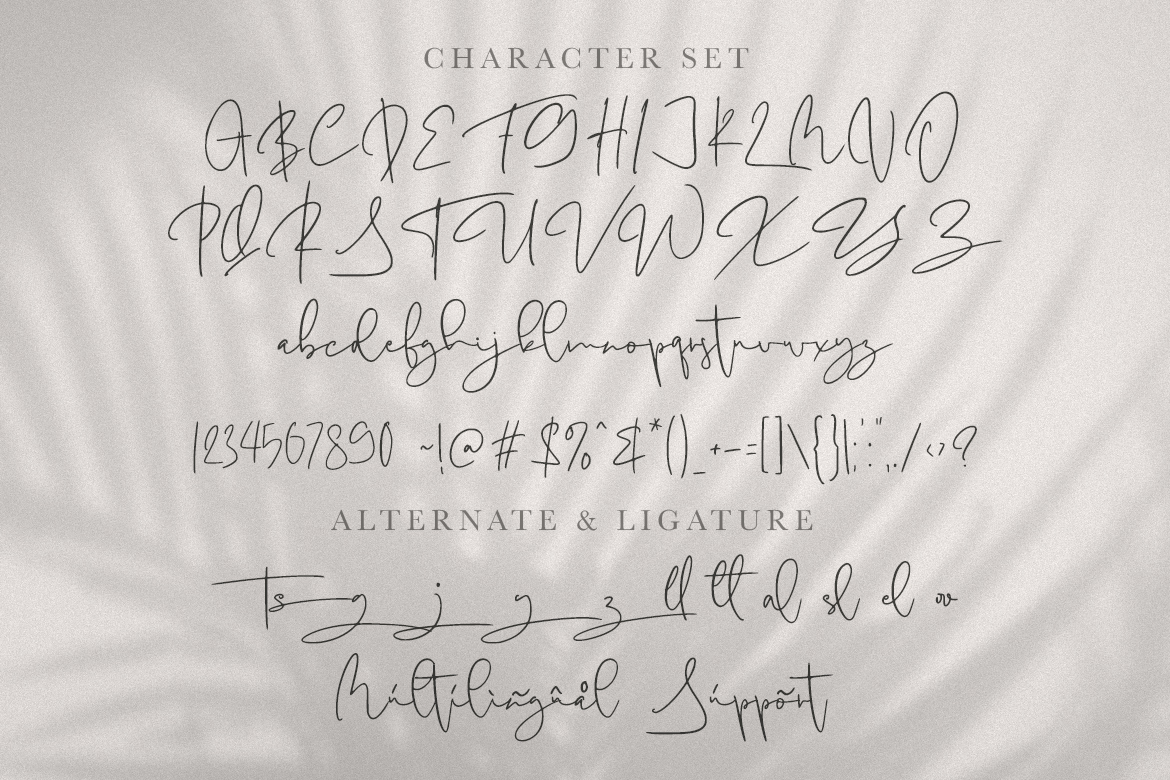 CHARACTER SET
ABCDEFGHIJKLMNO
PQRSTUVWXYZ
abcdefghijklmnopqrstuvwxyz
1234567890 ~!@#$%^&*()_+-=[]\{}|;':",./<>?
ALTERNATE & LIGATURE
Ts g j y z ll tt al sl el ov
Múltílingñâål Súppõrt